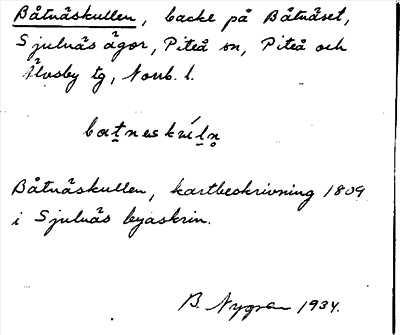 Båtnäskullen, backe på Båtnäset,
Sjulnäs ägor, Piteå sn, Piteå och
Älvsby tg, Norrb. l.
Båtnäskullen, kartbeskrivning 1809
i Sjulnäs byaskrin.
B. Nygren 1934.